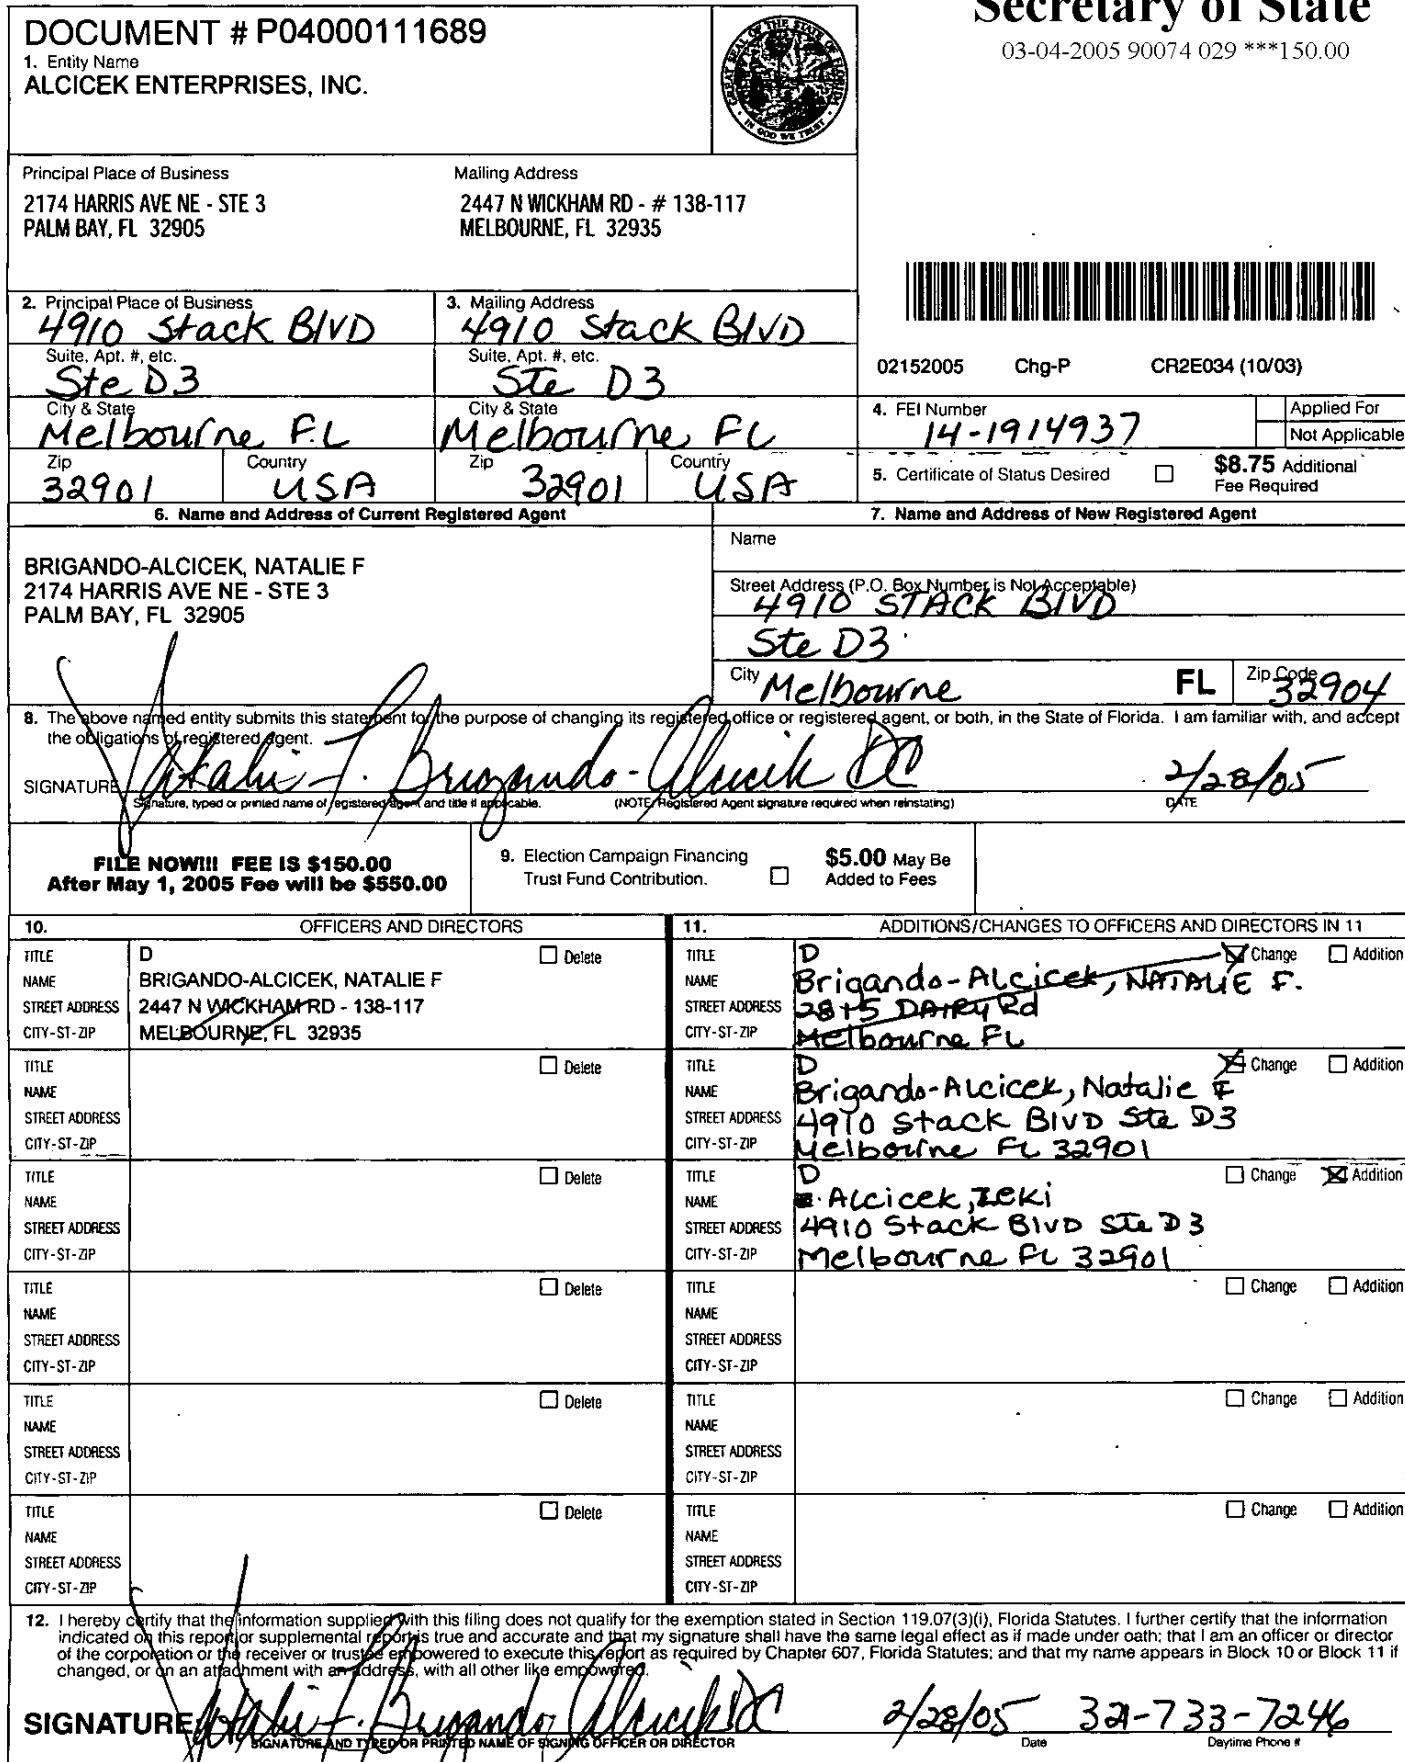 Secretary of State
03-04-2005 90074 029 ***150.00
DOCUMENT # P04000111689
1. Entity Name
ALCICEK ENTERPRISES, INC.
Principal Place of Business
2174 HARRIS AVE NE - STE 3
PALM BAY, FL 32905
Mailing Address
2447 N WICKHAM RD - # 138-117
MELBOURNE, FL 32935
2. Principal Place of Business
4910 Stack BlVD
Suite, Apt. #, etc.
Ste D3
City & State
Melbourne FL
Zip
32901
Country
USA
3. Mailing Address
4910 Stack BlVD
Suite, Apt. #, etc.
Ste D3
City & State
Melbourne FL
Zip
32901
Country
USA
02152005 Chg-P CR2E034 (10/03)
4. FEI Number
14-1914937
Applied For
Not Applicable
5. Certificate of Status Desired
$8.75 Additional
Fee Required
6. Name and Address of Current Registered Agent
BRIGANDO-ALCICEK, NATALIE F
2174 HARRIS AVE NE - STE 3
PALM BAY, FL 32905
7. Name and Address of New Registered Agent
Name
Street Address (P.O. Box Number is Not Acceptable)
4910 STACK BlVD
Ste D3
City Melbourne FL Zip Code 32904
8. The above named entity submits this statement for the purpose of changing its registered office or registered agent, or both, in the State of Florida. I am familiar with, and accept
the obligations of registered agent.
SIGNATURE Natalie F. Brigando-Alcicek DC 2/28/05
Signature, typed or printed name of registered agent and title if applicable. (NOTE: Registered Agent signature required when reinstating) DATE
FILE NOW!!! FEE IS $150.00
After May 1, 2005 Fee will be $550.00
9. Election Campaign Financing
Trust Fund Contribution.
$5.00 May Be
Added to Fees
10. OFFICERS AND DIRECTORS
TITLE D Delete
NAME BRIGANDO-ALCICEK, NATALIE F
STREET ADDRESS 2447 N WICKHAM RD - 138-117
CITY-ST-ZIP MELBOURNE, FL 32935
TITLE Delete
NAME
STREET ADDRESS
CITY-ST-ZIP
TITLE Delete
NAME
STREET ADDRESS
CITY-ST-ZIP
TITLE Delete
NAME
STREET ADDRESS
CITY-ST-ZIP
TITLE Delete
NAME
STREET ADDRESS
CITY-ST-ZIP
TITLE Delete
NAME
STREET ADDRESS
CITY-ST-ZIP
11. ADDITIONS/CHANGES TO OFFICERS AND DIRECTORS IN 11
TITLE D Change Addition
NAME Brigando-Alcicek, NATALIE F.
STREET ADDRESS 2815 DAIRY Rd
CITY-ST-ZIP Melbourne FL
TITLE D Change Addition
NAME Brigando-Alcicek, Natalie F
STREET ADDRESS 4910 Stack BlVD Ste D3
CITY-ST-ZIP Melbourne FL 32901
TITLE D Change Addition
NAME Alcicek, Zeki
STREET ADDRESS 4910 Stack BlVD Ste D3
CITY-ST-ZIP Melbourne FL 32901
TITLE Change Addition
NAME
STREET ADDRESS
CITY-ST-ZIP
TITLE Change Addition
NAME
STREET ADDRESS
CITY-ST-ZIP
TITLE Change Addition
NAME
STREET ADDRESS
CITY-ST-ZIP
12. I hereby certify that the information supplied with this filing does not qualify for the exemption stated in Section 119.07(3)(i), Florida Statutes. I further certify that the information
indicated on this report or supplemental report is true and accurate and that my signature shall have the same legal effect as if made under oath; that I am an officer or director
of the corporation or the receiver or trustee empowered to execute this report as required by Chapter 607, Florida Statutes; and that my name appears in Block 10 or Block 11 if
changed, or on an attachment with an address, with all other like empowered.
SIGNATURE: Natalie F. Brigando Alcicek DC 2/28/05 321-733-7246
SIGNATURE AND TYPED OR PRINTED NAME OF SIGNING OFFICER OR DIRECTOR Date Daytime Phone #